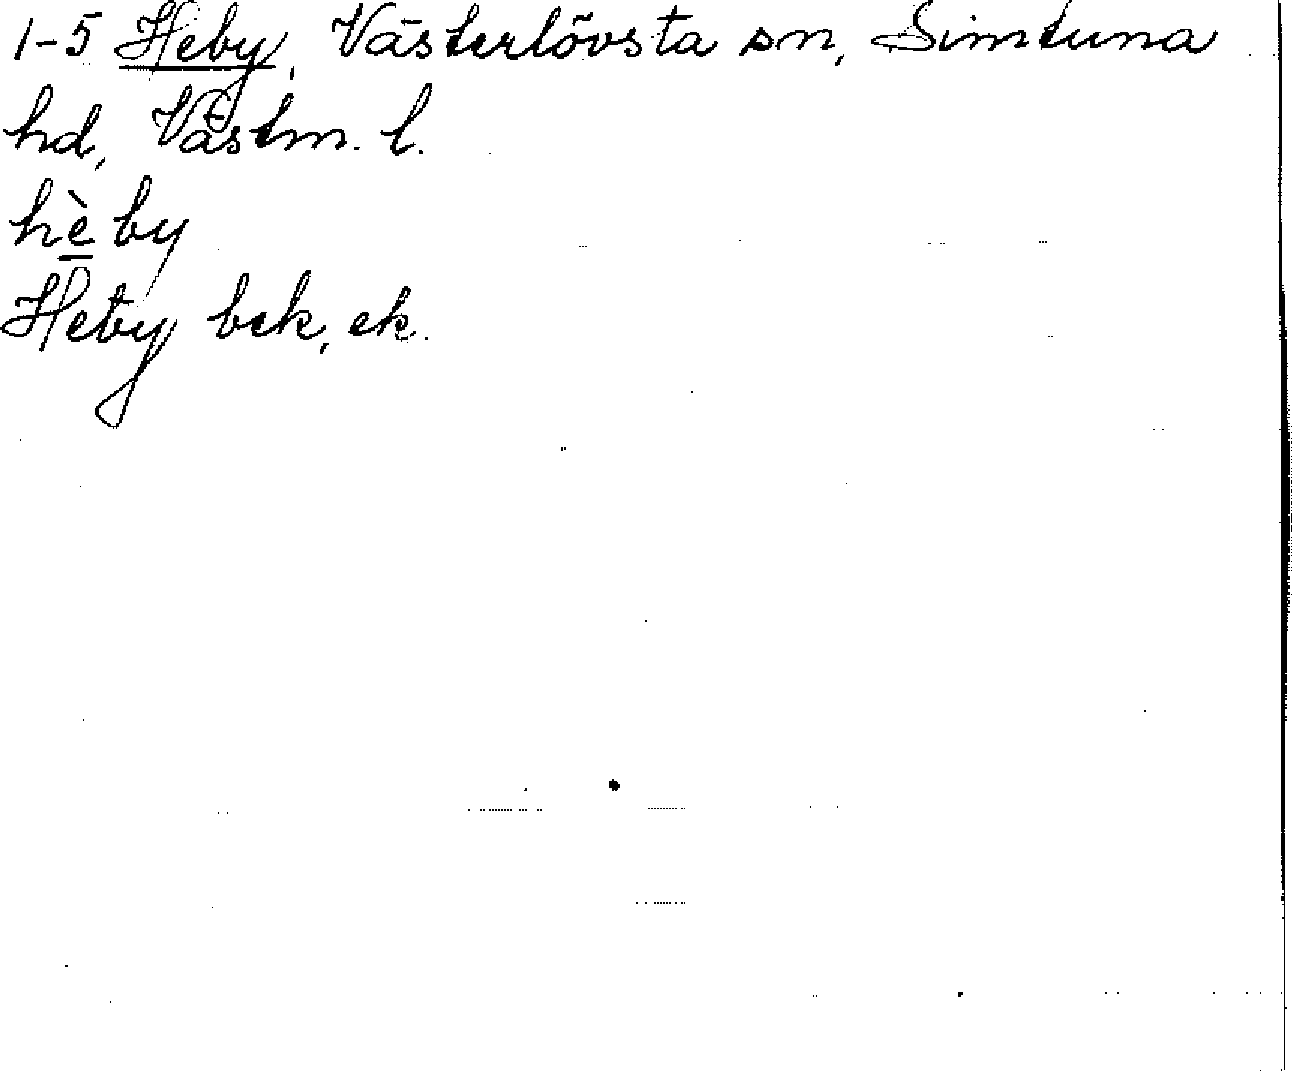 1-5 Heby, Västerlövsta sn, Simtuna
hd, Västm. l.
hè by
Heby bek, ek.